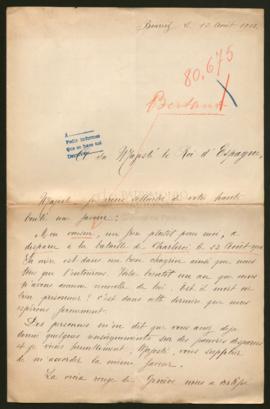 Biarritz le 13 Août 1915
80.675
Bertaux
A
Pedir informes
Que se hace así
A sa Majesté le Roi d'Espagne,
Majesté, je viens solliciter de votre haute
bonté une faveur:
Mon cousin, un peu plutôt pour moi, a
disparu à la bataille de Charleroi, le 22 Août 1914
Sa mère est dans un bien chagrin ainsi que nous
tous qui l'entourons. Voilà bientôt un an que nous
n'avons aucune nouvelle de lui. Est-il mort ou
bien prisonnier? c'est dans cette dernière que nous
espérons fermement.
Des personnes m'on dit que vous avez déjà
donné quelques renseignements sur des pauvres disparus
et je viens humblement, Majesté, vous supplier
de m'accorder la même faveur.
La croix rouge de Genève nous a certifié